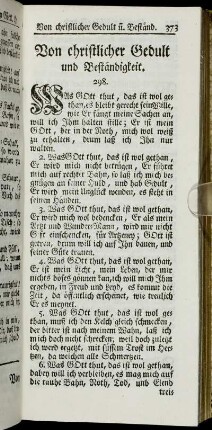 Von christlicher Gedult u. Beständ. 373
Von christlicher Gedult
und Beständigkeit.
298.
WAs GOtt thut, das ist wol ge-
than, es bleibt gerecht sein Wille,
wie Er fängt meine Sachen an,
will ich Ihm halten stille; Er ist mein
GOtt, der in der Noth, mich wol weiß
zu erhalten, drum laß ich Ihn nur
walten.
2. Was GOtt thut, das ist wol gethan,
Er wird mich nicht betrügen, Er führet
mich auf rechter Bahn, so laß ich mich be-
gnügen an seiner Huld, und hab Gedult,
Er wird mein Unglück wenden, es steht in
seinen Händen.
3. Was GOtt thut, das ist wol gethan,
Er wird mich wol bedencken, Er als mein
Artzt und Wunder-Mann, wird mir nicht
Gifft einschencken, für Artzney; GOtt ist
getreu, drum will ich auf Ihn bauen, und
seiner Güte trauen.
4. Was GOtt thut, das ist wol gethan,
Er ist mein Licht, mein Leben, der mir
nichts böses gönnen kan, ich will mich Ihm
ergeben, in Freud und Leyd, es kommt die
Zeit, da öffentlich erscheinet, wie treulich
Er es meynet.
5. Was GOtt thut, das ist wol ge-
than, muß ich den Kelch gleich schmecken,
der bitter ist nach meinem Wahn, laß ich
mich doch nicht schrecken, weil doch zuletzt
ich werd ergetzt, mit süssem Trost im Her-
zen, da weichen alle Schmertzen.
6. Was GOtt thut, das ist wol gethan,
dabey will ich verbleiben, es mag mich auf
die rauhe Bahn, Noth, Tod, und Elend
treib